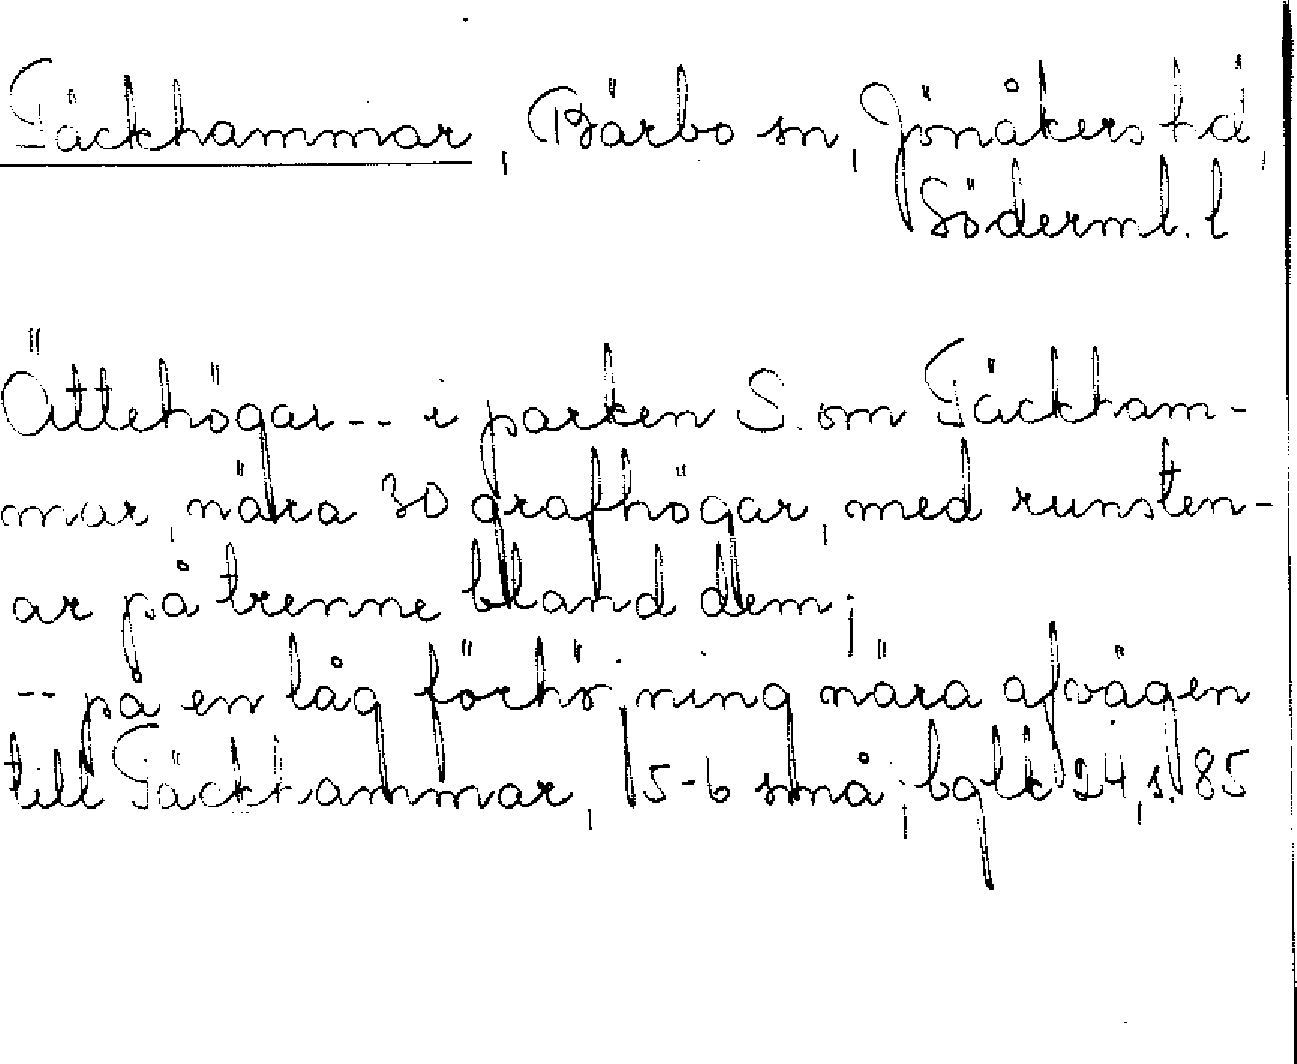 Täckhammar, Bärbo sn, Jönåkers hd,
Söderml. l
Ättehögar -- i parken S. om Täckham-
mar, nära 30 grafhögar, med runsten-
ar på trenne bland dem;
-- på en låg förhöjning nära afvägen
till Täckhammar, 5-6 små; bglk 24, s. 85